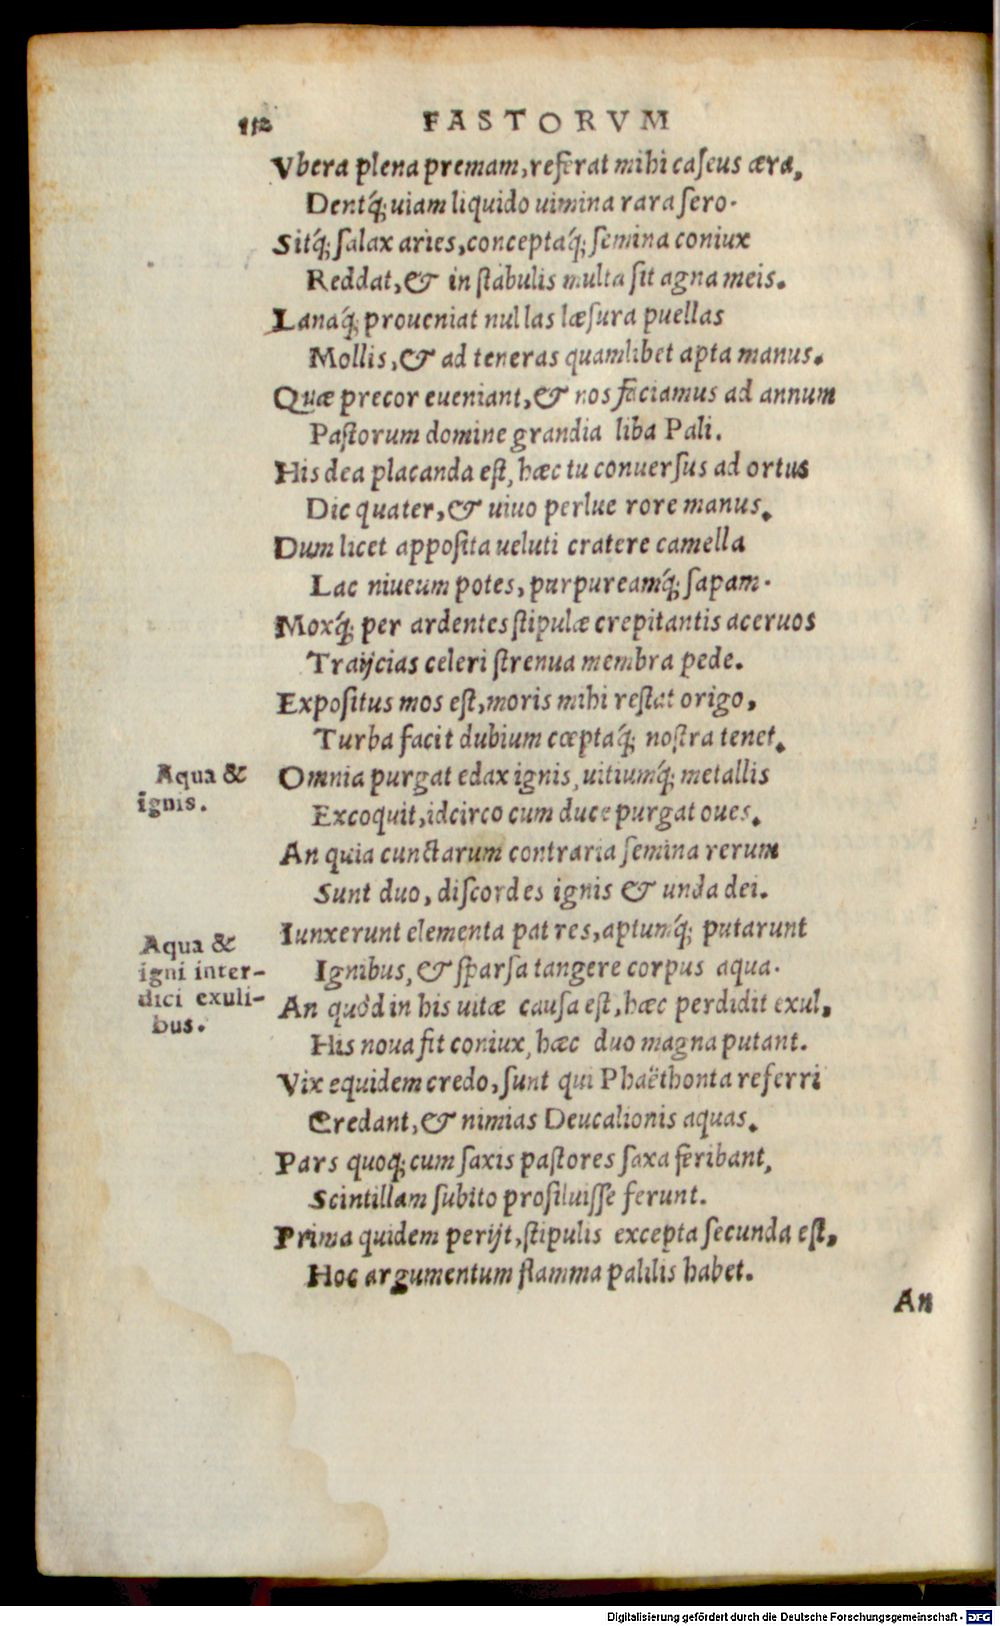 112 FASTORVM
Vbera plena premam, referat mihi caseus æra,
Dentq́; uiam liquido uimina rara sero.
Sitq́; salax aries, conceptaq́; semina coniux
Reddat, & in stabulis multa sit agna meis.
Lanaq́; proueniat nullas læsura puellas
Mollis, & ad teneras quamlibet apta manus.
Quæ precor eueniant, & nos faciamus ad annum
Pastorum domine grandia liba Pali.
His dea placanda est, hæc tu conuersus ad ortus
Dic quater, & uiuo perlue rore manus.
Dum licet apposita ueluti cratere camella
Lac niueum potes, purpureamq́; sapam.
Moxq́; per ardentes stipulæ crepitantis aceruos
Traijcias celeri strenua membra pede.
Expositus mos est, moris mihi restat origo,
Turba facit dubium cœptaq́; nostra tenet.
Aqua &
ignis.
Omnia purgat edax ignis, uitiumq́; metallis
Excoquit, idcirco cum duce purgat oues.
An quia cunctarum contraria semina rerum
Sunt duo, discordes ignis & unda dei.
Aqua &
igni inter-
dici exuli-
bus.
Iunxerunt elementa patres, aptumq́; putarunt
Ignibus, & sparsa tangere corpus aqua.
An quòd in his uitæ causa est, hæc perdidit exul,
His noua fit coniux, hæc duo magna putant.
Vix equidem credo, sunt qui Phaëthonta referri
Credant, & nimias Deucalionis aquas.
Pars quoq; cum saxis pastores saxa feribant,
Scintillam subito prosiluisse ferunt.
Prima quidem perijt, stipulis excepta secunda est,
Hoc argumentum flamma palilis habet.
An
Digitalisierung gefördert durch die Deutsche Forschungsgemeinschaft - DFG